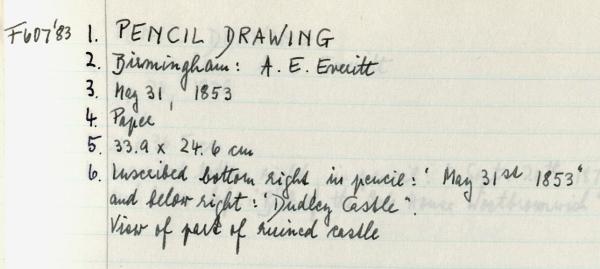 F607'83 1. PENCIL DRAWING
2. Birmingham: A. E. Everitt
3. May 31, 1853
4. Paper
5. 33.9 x 24.6 cm
6. Inscribed bottom right in pencil: "May 31st 1853"
and below right: "Dudley Castle".
View of part of ruined castle